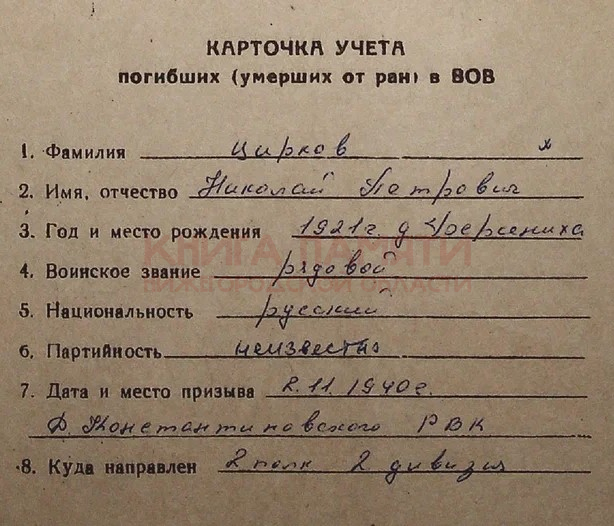 КАРТОЧКА УЧЕТА
погибших (умерших от ран) в ВОВ
1. Фамилия Цирков х
2. Имя, отчество Николай Петрович
3. Год и место рождения 1921г. д
КНИГА ПАМЯТИ
4. Воинское звание рядовой
НИЖЕГОРОДСКОЙ ОБЛАСТИ
5. Национальность русский
6. Партийность неизвестно
7. Дата и место призыва 2.11.1940г.
Д. Константиновского РВК
8. Куда направлен 2 полк 2 дивизия